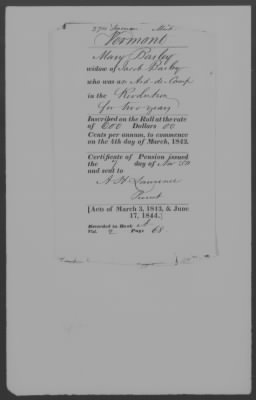 Vermont
Mary Bailey
widow of Jacob Bailey
who was an Aid-de-Camp
in the Revolution
for two years
Inscribed on the Roll at the rate
of 600 Dollars 00
Cents per annum, to commence
on the 4th day of March, 1843.
Certificate of Pension issued
the 7 day of Nov 50
and sent to
A. H.
Present
[Acts of March 3, 1843, & June
17, 1844.]
Recorded in Book A
Vol. 2 Page 68